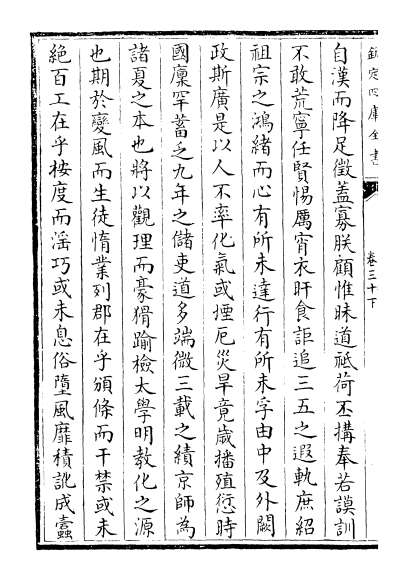 欽定四庫全書
卷三十下
自漢而降足徵蓋寡朕顧惟昧道祗荷丕搆奉若謨訓
不敢荒寧任賢惕厲宵衣旰食詎追三五之遐軌庶紹
祖宗之鴻緒而心有所未達行有所未孚由中及外闕
政斯廣是以人不率化氣或堙厄災旱竟歲播殖愆時
國廩罕蓄乏九年之儲吏道多端微三載之績京師為
諸夏之本也將以觀理而豪猾踰檢太學明教化之源
也期於變風而生徒惰業列郡在乎頒條而干禁或未
絕百工在乎按度而滛巧或未息俗墮風靡積訛成蠹